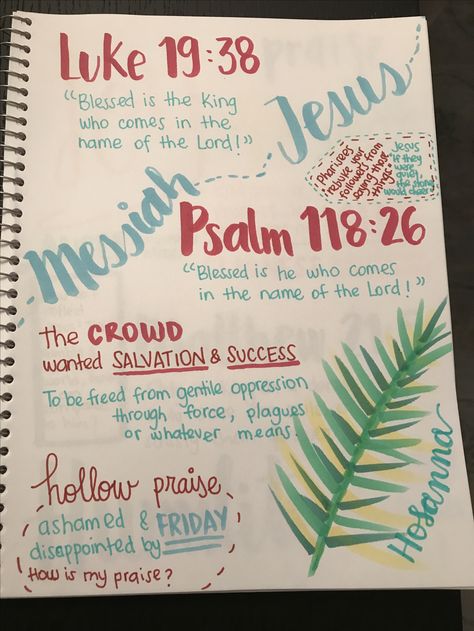 Luke 19:38
"Blessed is the King
who comes in the
name of the Lord!"
Jesus
Messiah
Pharisees
"rebuke your
followers from
saying those
things"
Jesus
"If they
were
quiet,
the stones
would cheer"
Psalm 118:26
"Blessed is he who comes
in the name of the Lord!"
The CROWD
wanted SALVATION & SUCCESS
To be freed from gentile oppression
through force, plagues
or whatever means.
hollow praise
ashamed & FRIDAY
disappointed by
How is my praise?
Hosanna